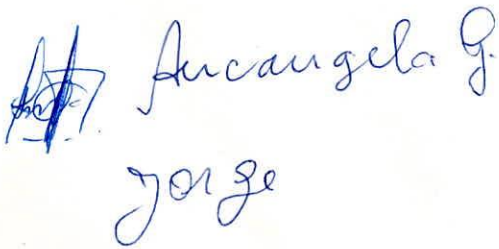 Arcangela G.
Jorge